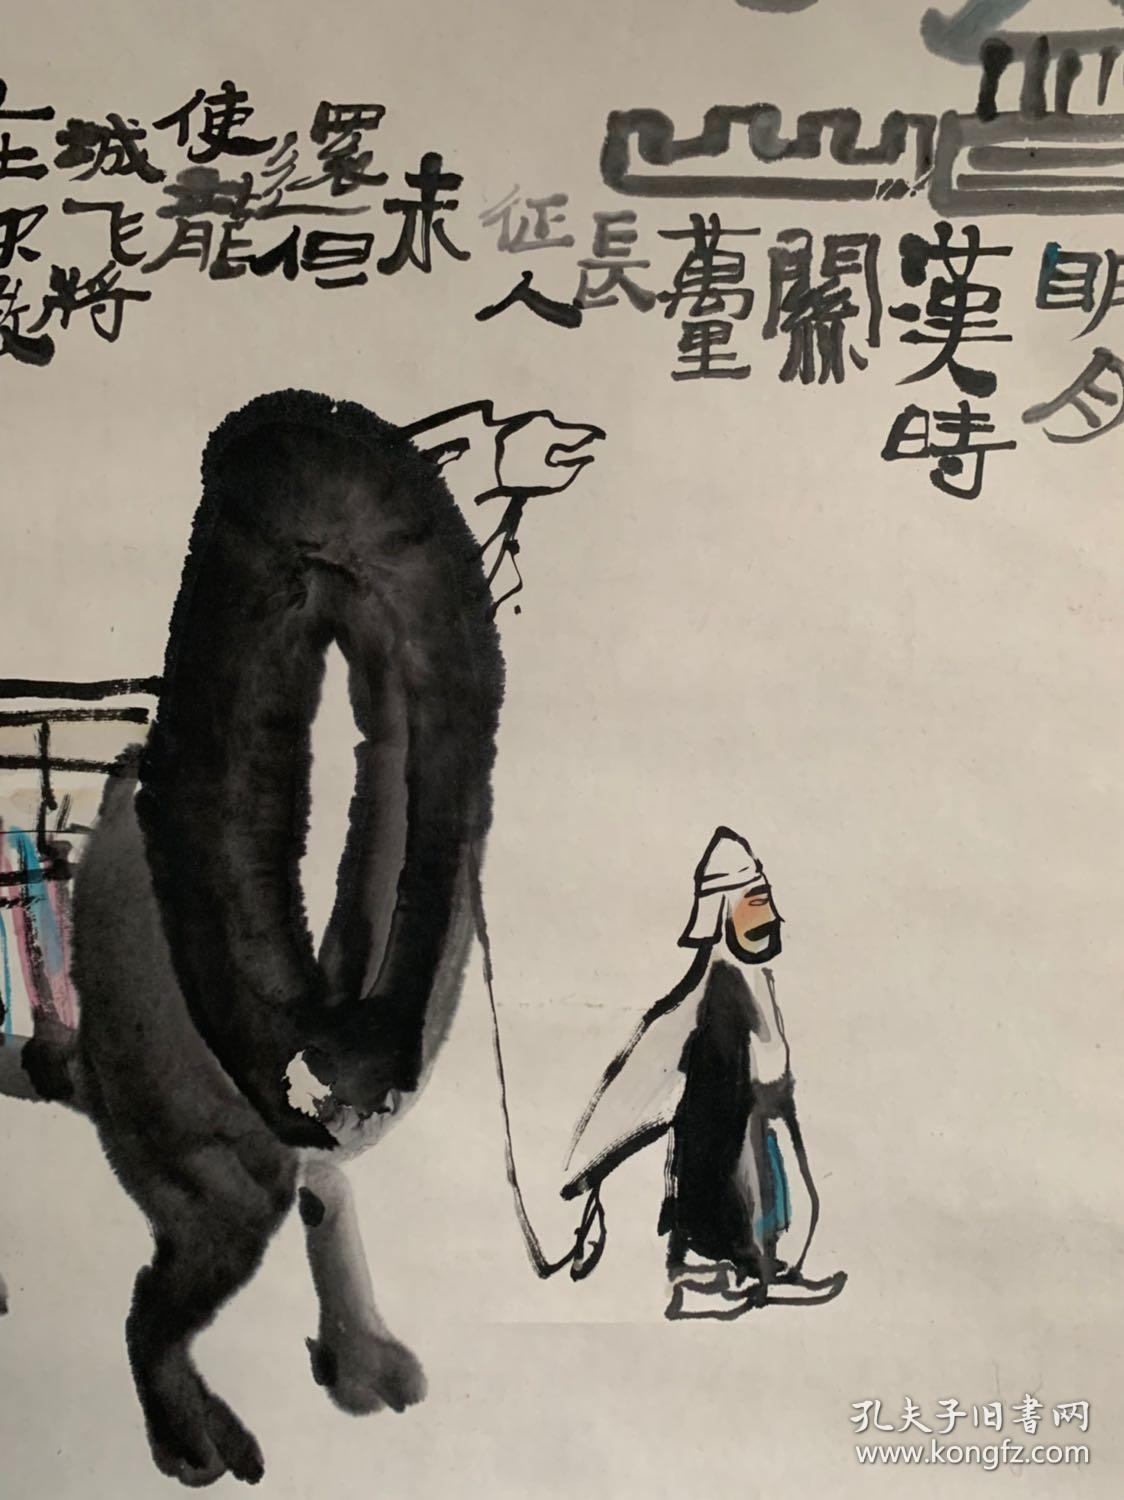 明月
漢時
關
萬里
長
征人
未
還但
使龍
城飞将
孔夫子旧書网
www.kongfz.com